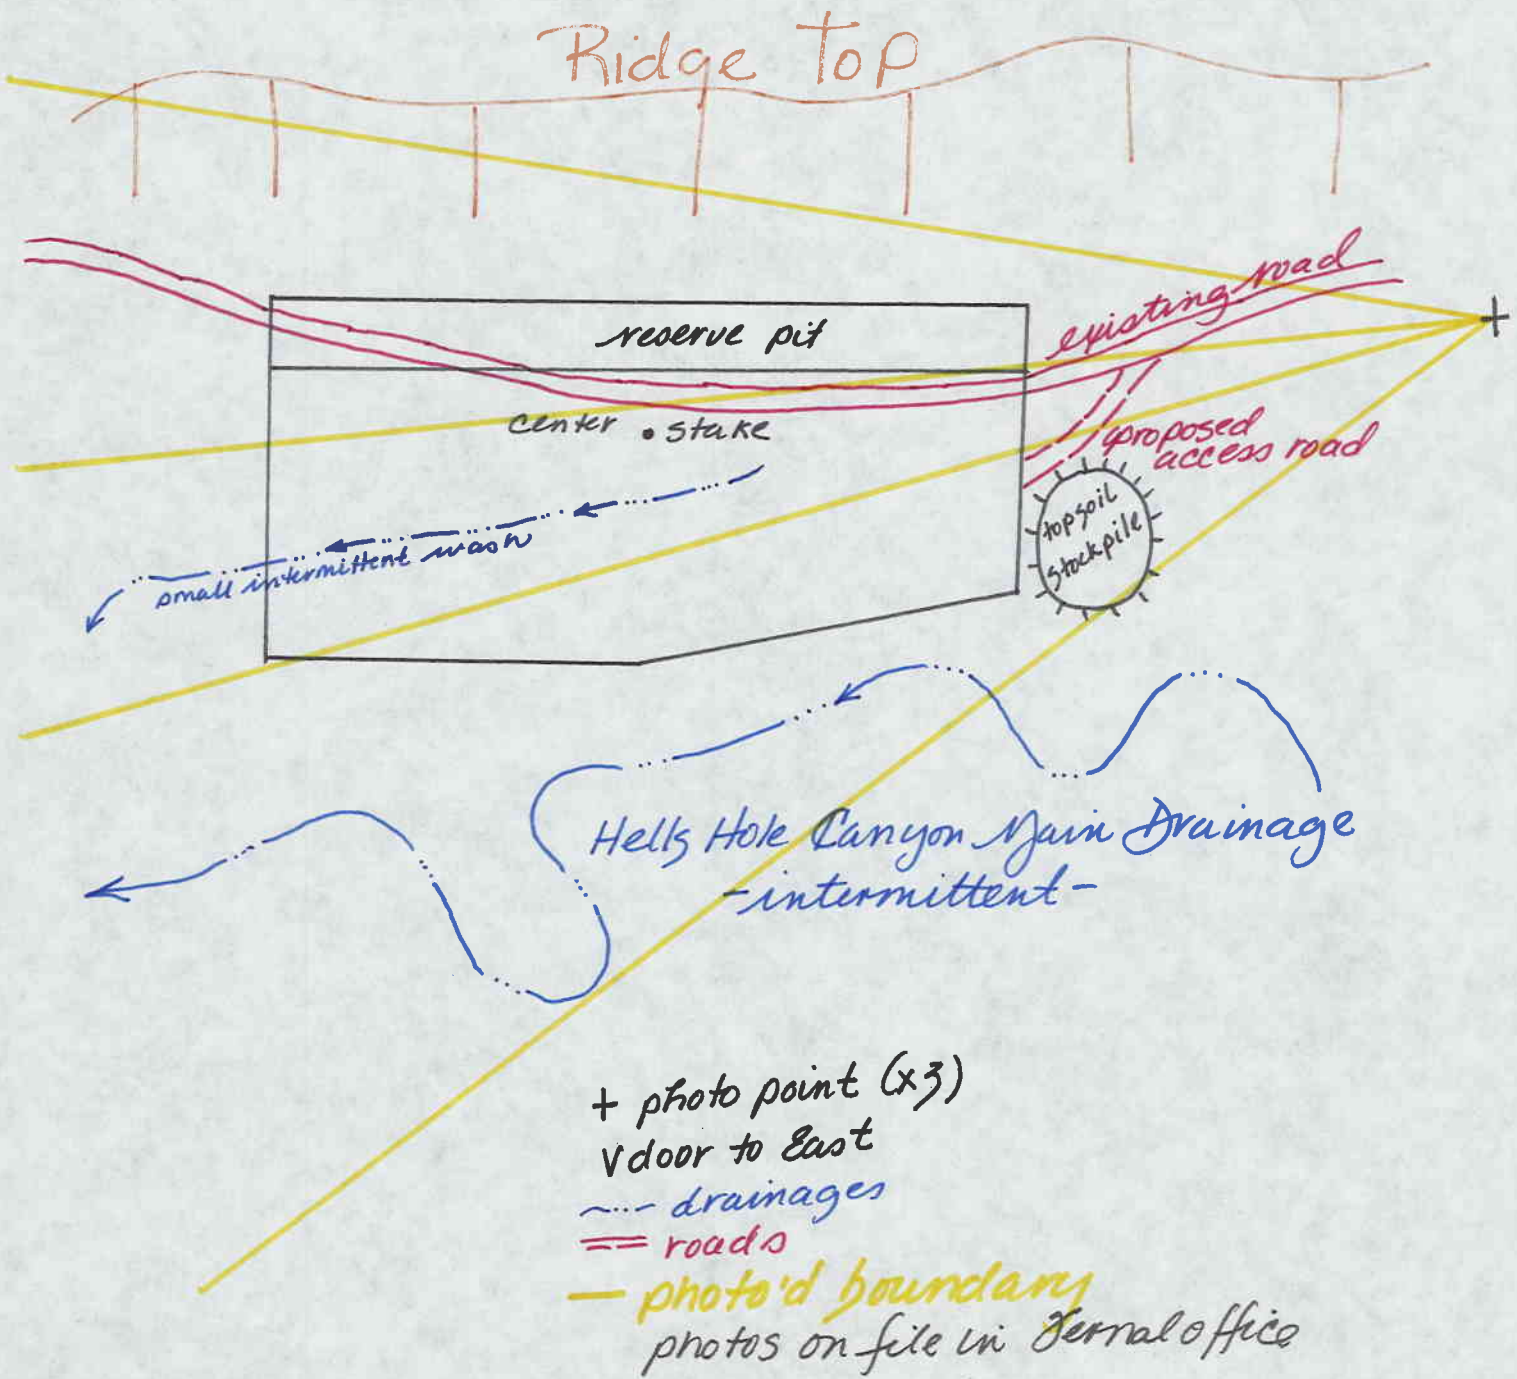 Ridge Top
existing road
reserve pit
center . stake
proposed
access road
topsoil
stockpile
small intermittent wash
Hells Hole Canyon Main Drainage
-intermittent-
+ photo point (x3)
V door to East
drainages
roads
photo'd boundary
photos on file in Vernal office